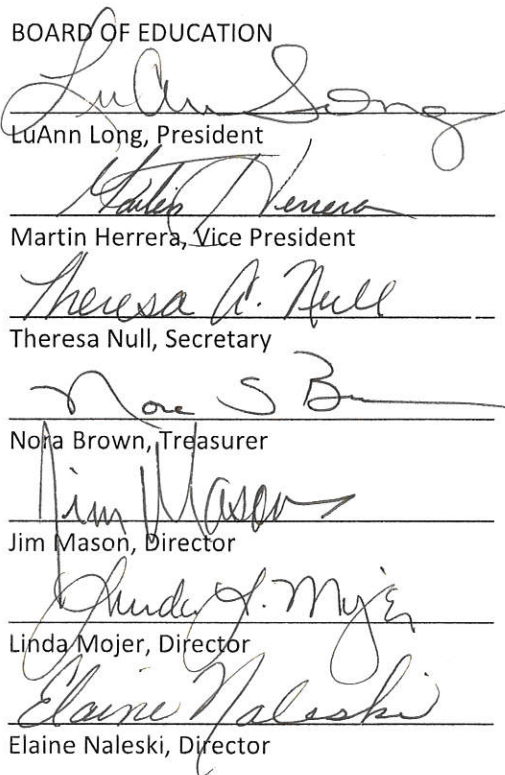 BOARD OF EDUCATION
LuAnn Long
LuAnn Long, President
Martin J Herrera
Martin Herrera, Vice President
Theresa A. Null
Theresa Null, Secretary
Nora S B
Nora Brown, Treasurer
Jim Mason
Jim Mason, Director
Linda L. Mojer
Linda Mojer, Director
Elaine Naleski
Elaine Naleski, Director